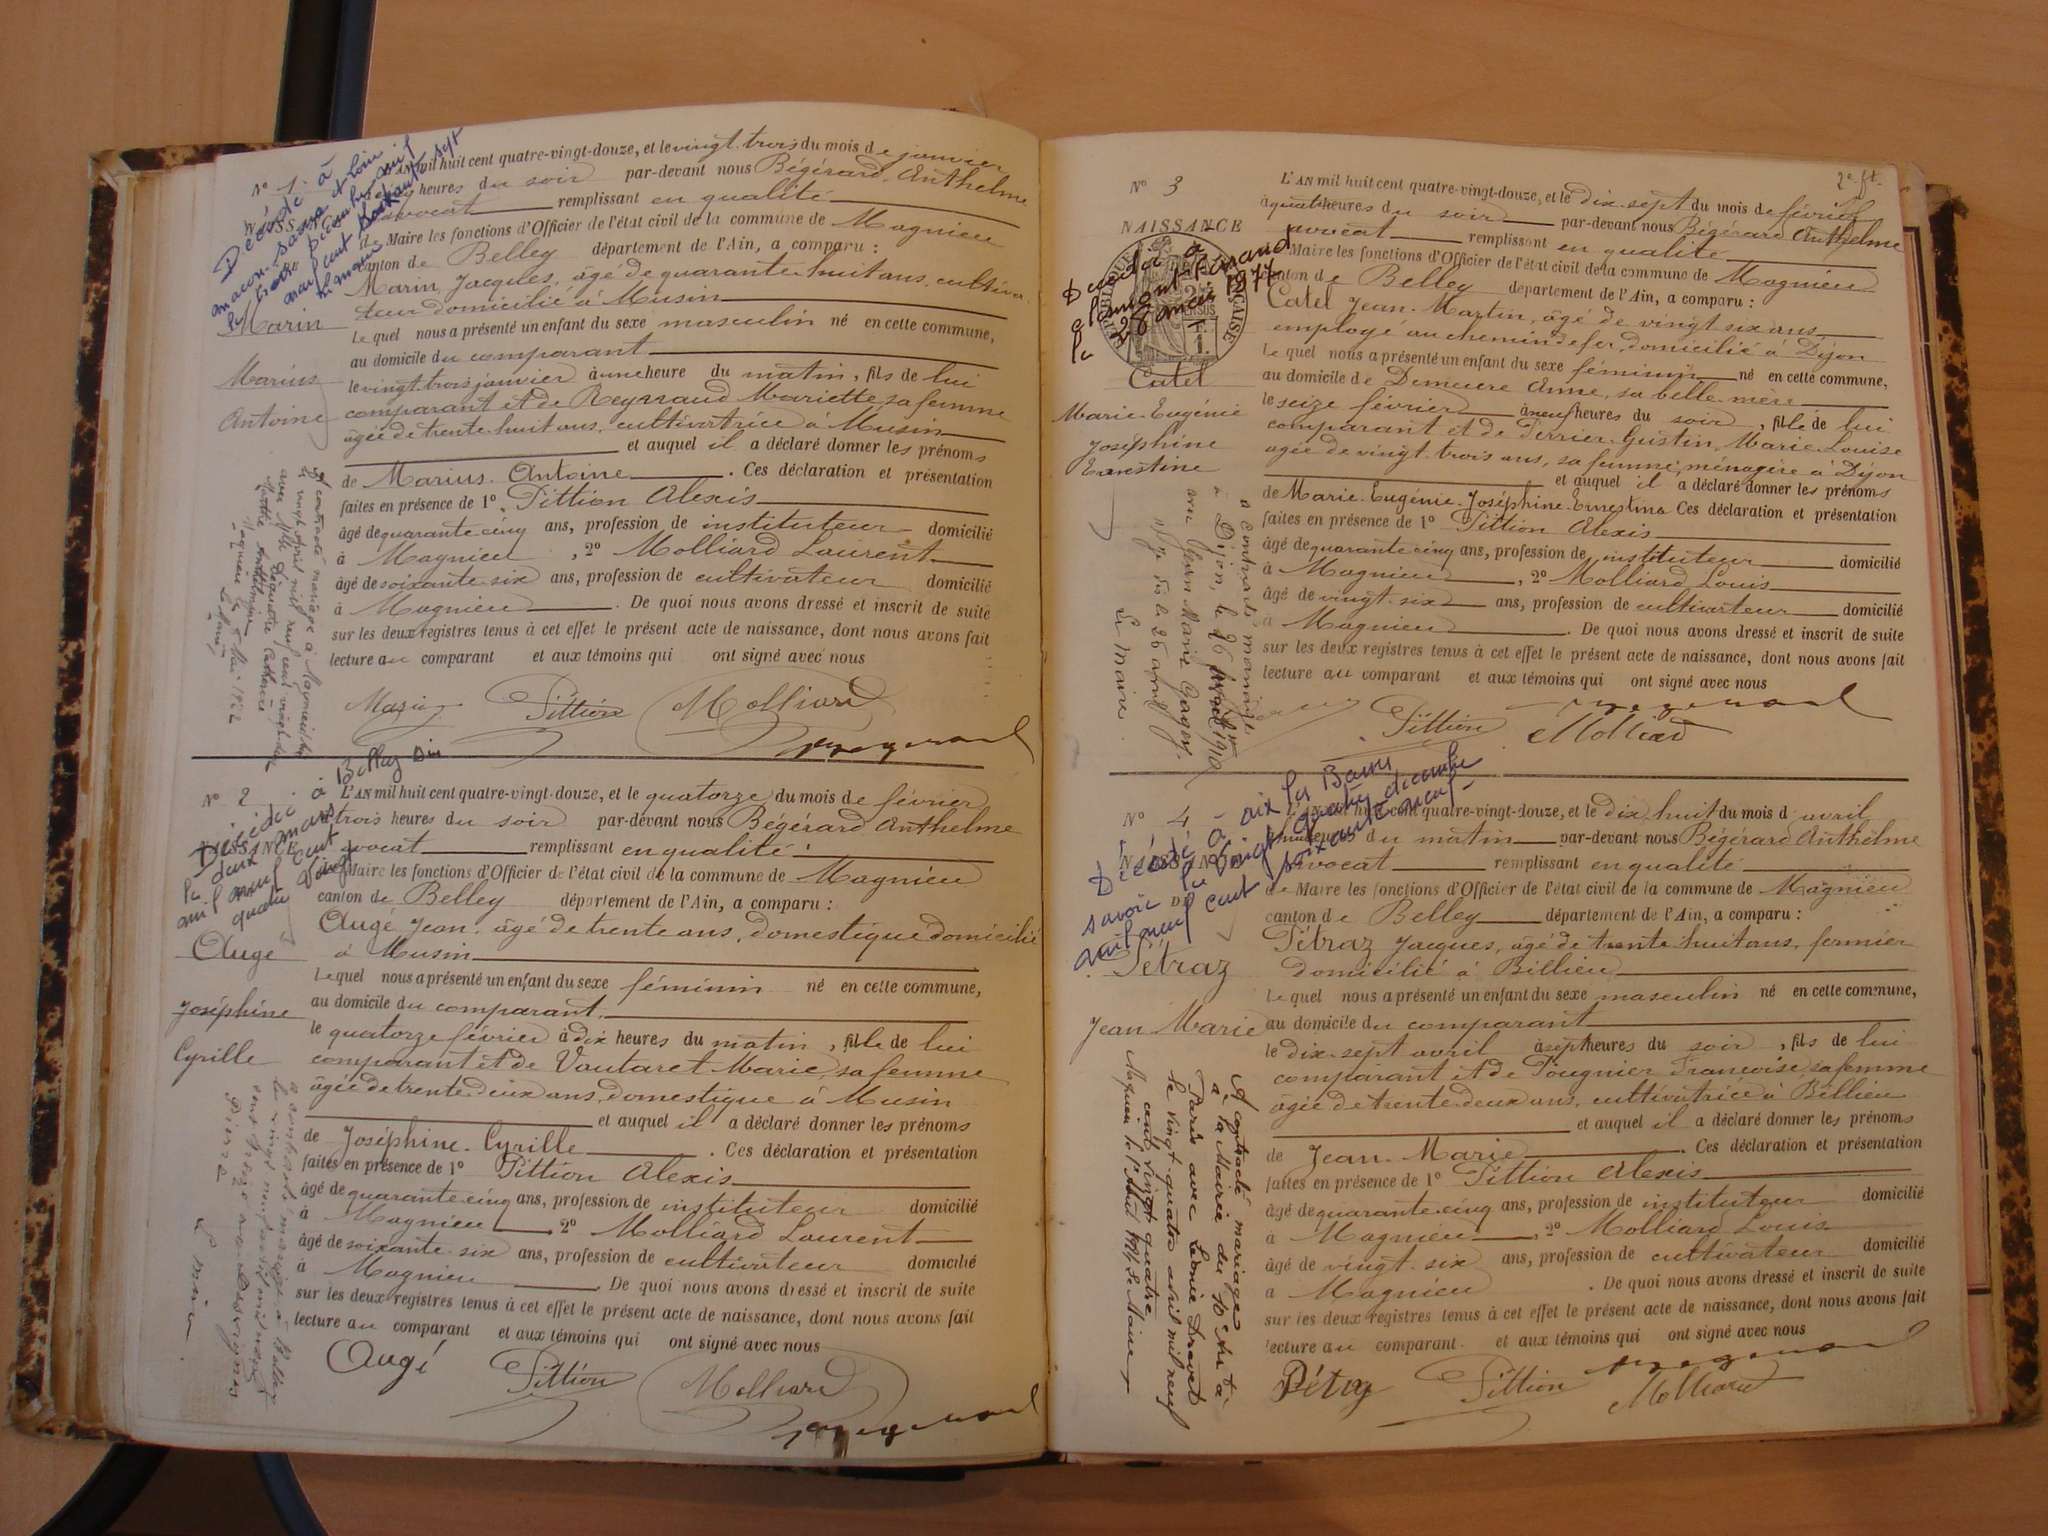 N° 1
NAISSANCE
Marin
Marius
Antoine
L'AN mil huit cent quatre-vingt-douze, et le vingt-trois du mois de janvier
heures du soir par-devant nous Bégérard Anthelme
avocat remplissant en qualité
de Maire les fonctions d'Officier de l'état civil de la commune de Magnieu
canton de Belley département de l'Ain, a comparu :
Marin Jacques, âgé de quarante-huit ans, cultiva-
teur domicilié à Musin
Lequel nous a présenté un enfant du sexe masculin né en cette commune,
au domicile du comparant
le vingt-trois janvier à une heure du matin, fils de lui
comparant et de Reynaud Mariette sa femme
âgée de trente-huit ans, cultivatrice à Musin
et auquel il a déclaré donner les prénoms
de Marius Antoine . Ces déclaration et présentation
faites en présence de 1° Pittion Alexis
âgé de quarante cinq ans, profession de instituteur domicilié
à Magnieu , 2° Molliard Laurent
âgé de soixante-six ans, profession de cultivateur domicilié
à Magnieu . De quoi nous avons dressé et inscrit de suite
sur les deux registres tenus à cet effet le présent acte de naissance, dont nous avons fait
lecture au comparant et aux témoins qui ont signé avec nous
Marin Pittion Molliard
N° 2
Décédée à Belley Ain
le deux mars
mil neuf cent
quatre vingt
Augé
Joséphine
Cyrille
L'AN mil huit cent quatre-vingt-douze, et le quatorze du mois de février
à trois heures du soir par-devant nous Bégérard Anthelme
avocat remplissant en qualité
de Maire les fonctions d'Officier de l'état civil de la commune de Magnieu
canton de Belley département de l'Ain, a comparu :
Augé Jean, âgé de trente ans, domestique domicilié
à Musin
Lequel nous a présenté un enfant du sexe féminin né en cette commune,
au domicile du comparant
le quatorze février à dix heures du matin, fille de lui
comparant et de Vautaret Marie, sa femme
âgée de trente-deux ans, domestique à Musin
et auquel il a déclaré donner les prénoms
de Joséphine-Cyrille . Ces déclaration et présentation
faites en présence de 1° Pittion Alexis
âgé de quarante cinq ans, profession de instituteur domicilié
à Magnieu , 2° Molliard Laurent
âgé de soixante-six ans, profession de cultivateur domicilié
à Magnieu . De quoi nous avons dressé et inscrit de suite
sur les deux registres tenus à cet effet le présent acte de naissance, dont nous avons fait
lecture au comparant et aux témoins qui ont signé avec nous
Augé Pittion Molliard
2e ft.
N° 3
NAISSANCE
Décédée à
Clermont-Ferrand
le 28 1977
Catel
Marie-Eugénie
Joséphine
Ernestine
L'AN mil huit cent quatre-vingt-douze, et le dix-sept du mois de février
à quatre heures du soir par-devant nous Bégérard Anthelme
avocat remplissant en qualité
de Maire les fonctions d'Officier de l'état civil de la commune de Magnieu
canton de Belley département de l'Ain, a comparu :
Catel Jean-Martin, âgé de vingt six ans
employé au chemin de fer, domicilié à Dijon
Lequel nous a présenté un enfant du sexe féminin né en cette commune,
au domicile de Demeure Anne, sa belle-mère
le seize février à neuf heures du soir, fille de lui
comparant et de Perrier-Gustin, Marie-Louise
âgée de vingt-trois ans, sa femme, ménagère à Dijon
et auquel il a déclaré donner les prénoms
de Marie-Eugénie-Joséphine-Ernestine Ces déclaration et présentation
faites en présence de 1° Pittion Alexis
âgé de quarante cinq ans, profession de instituteur domicilié
à Magnieu , 2° Molliard Louis
âgé de vingt-six ans, profession de cultivateur domicilié
à Magnieu . De quoi nous avons dressé et inscrit de suite
sur les deux registres tenus à cet effet le présent acte de naissance, dont nous avons fait
lecture au comparant et aux témoins qui ont signé avec nous
Pittion Molliard
N° 4
Décédé à Aix les Bains
savoie le vingt quatre décembre
mil neuf cent soixante neuf
Pétraz
Jean Marie
A contracté mariage
à la Mairie du 10e Art à
Paris avec Léonie Dravet
le vingt-quatre avril mil neuf
cent vingt quatre
L'AN mil huit cent quatre-vingt-douze, et le dix-huit du mois d'avril
du matin par-devant nous Bégérard Anthelme
avocat remplissant en qualité
de Maire les fonctions d'Officier de l'état civil de la commune de Magnieu
canton de Belley département de l'Ain, a comparu :
Pétraz Jacques, âgé de trente-huit ans, fermier
domicilié à Billieu
Lequel nous a présenté un enfant du sexe masculin né en cette commune,
au domicile du comparant
le dix-sept avril à sept heures du soir, fils de lui
comparant et de Pougnier Françoise, sa femme
âgée de trente-deux ans, cultivatrice à Billieu
et auquel il a déclaré donner les prénoms
de Jean-Marie . Ces déclaration et présentation
faites en présence de 1° Pittion Alexis
âgé de quarante-cinq ans, profession de instituteur domicilié
à Magnieu , 2° Molliard Louis
âgé de vingt-six ans, profession de cultivateur domicilié
à Magnieu . De quoi nous avons dressé et inscrit de suite
sur les deux registres tenus à cet effet le présent acte de naissance, dont nous avons fait
lecture au comparant et aux témoins qui ont signé avec nous
Pétraz Pittion Molliard